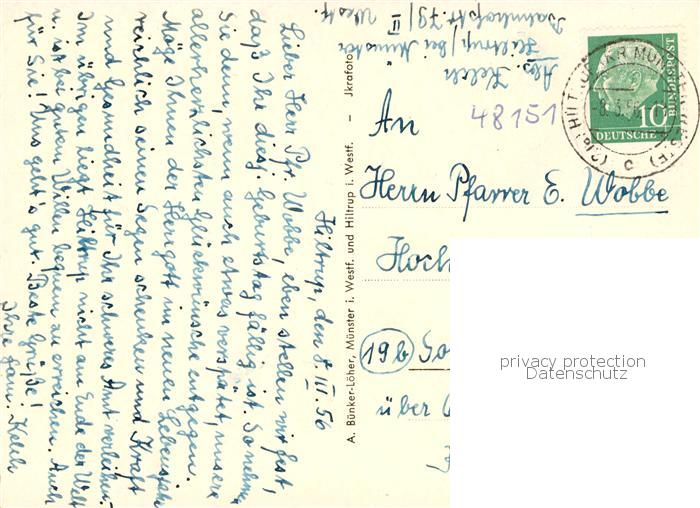 Hiltrup, den 8. III. 56
Lieber Herr Pfr. Wobbe, eben stellen wir fest,
daß Ihr diesj. Geburtstag fällig ist. So nehmen
Sie denn, wenn auch etwas verspätet, unsere
allerherzlichsten Glückwünsche entgegen.
Möge Ihnen der Herrgott im neuen Lebensjahr
reichlich seinen Segen schenken und Kraft
und Gesundheit für Ihr schweres Amt verleihen.
Im übrigen liegt Hiltrup nicht am Ende der Welt
u. ist bei gutem Willen bequem zu erreichen. Auch
für Sie! Uns geht's gut. Beste Grüße!
Ihre Fam. Kelch
A. Bünker-Löher, Münster i. Westf. und Hiltrup i. Westf. – Jkrafoto
Abs. Kelch
Hiltrup/bei Münster
Bahnhofstr. 79/II
Westf.
48151
10
DEUTSCHE
BUNDESPOST
HILTRUP ÜBER MÜNSTER (WESTF)
-8.3.56
c
An
Herrn Pfarrer E. Wobbe
Hoch
(19b)
über
privacy protection
Datenschutz